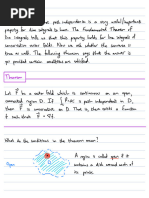 path independence is a very useful/important
property for line integrals to have. The Fundamental Theorem of
line integrals tells us that this property holds for line integrals of
conservative vector fields. Now we ask whether the converse is
true as well. The following theorem says that the answer is
yes provided certain conditions are satisfied.
Theorem
Let F be a vector field which is continuous on an open,
connected region D. If ∫ F·dr is path independent in D,
then F is conservative on D. That is, there exists a function
f such that ∇f = F.
What do the conditions in the theorem mean?
Open
A region is called open if it
contains a disk around each of
its points.